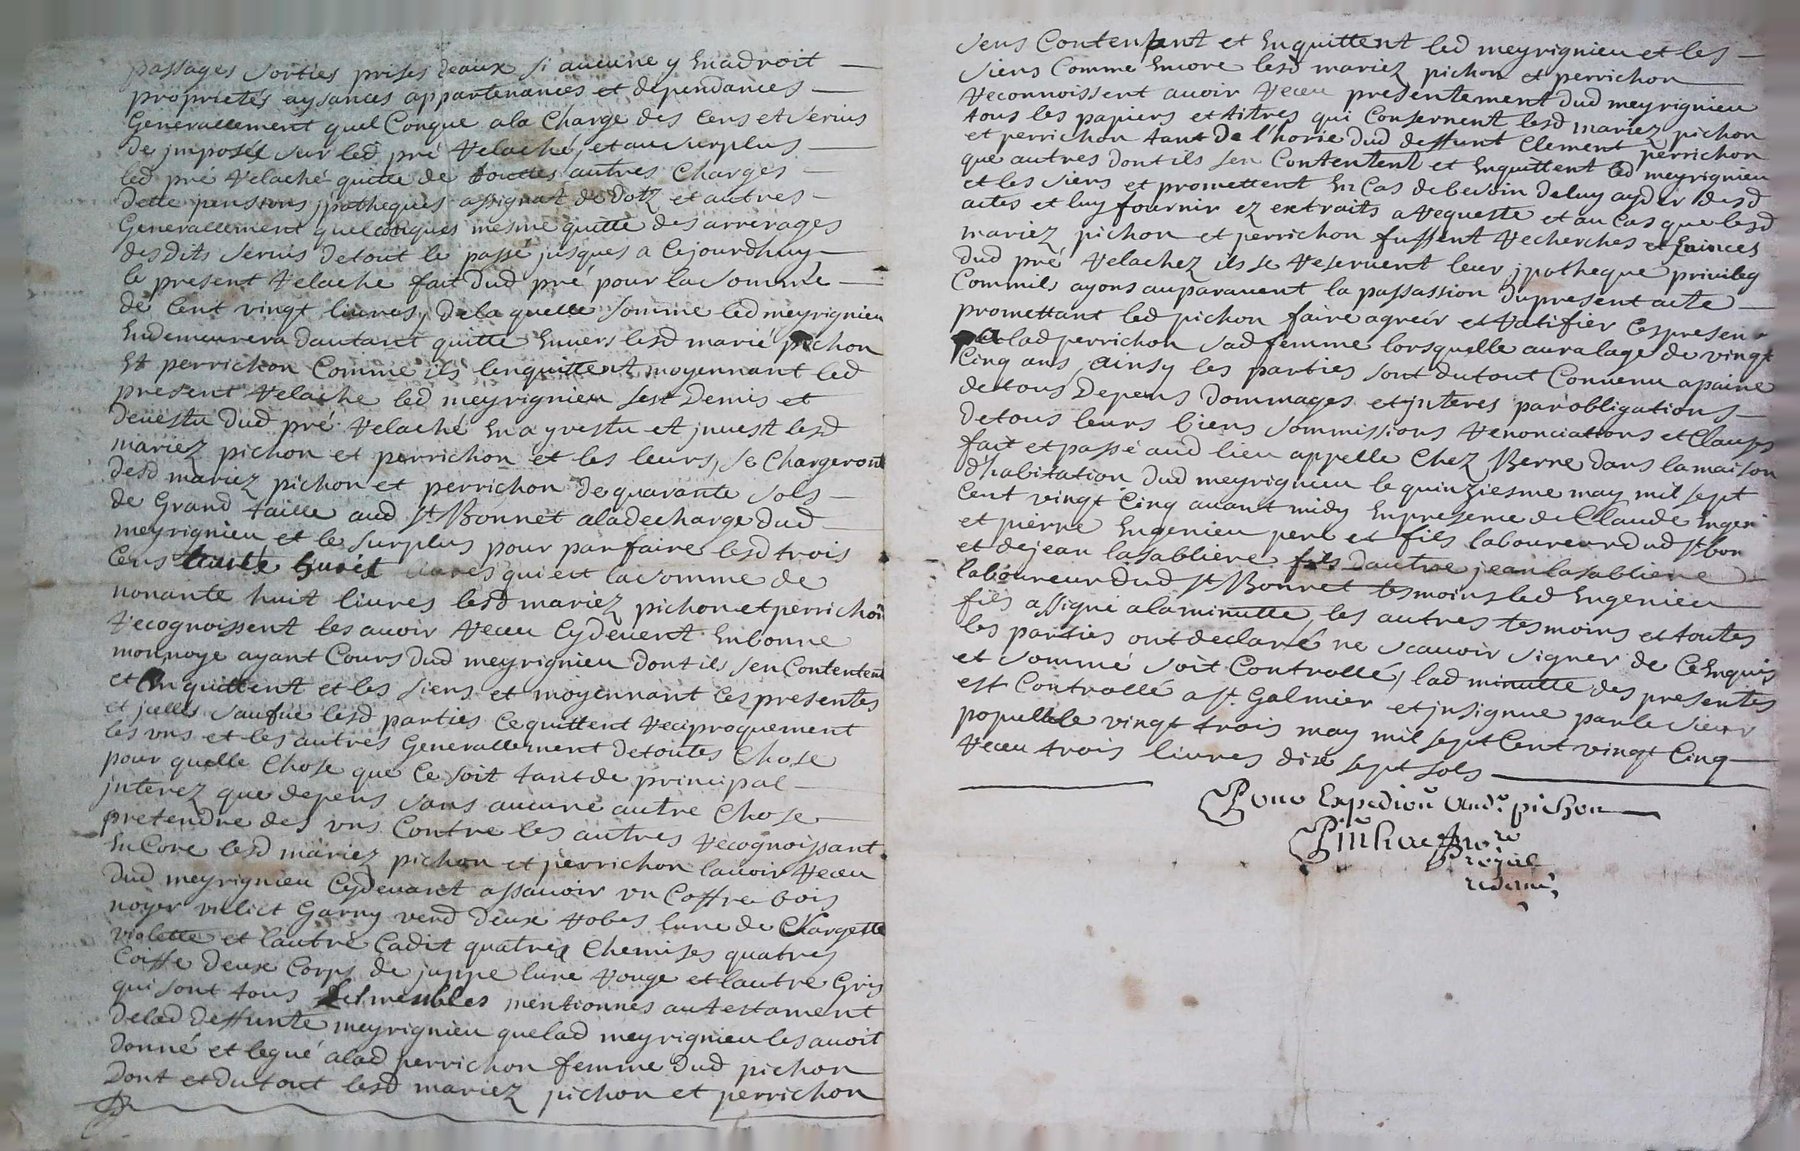 passages sorties prises deaux si aucune y en a droit
proprietés aysances appartenances et dependances
Generallement quelConque ala Charge des Cens et servis
de jmposée sur led pré relaché, et au surplus
led pré relaché quitte de touttes autres Charges
dette pensions jpotheques assignat de dotz et autres
Generallement quelconques mesme quitte des arrerages
desdits servis de tout le passé jusques a Cejourdhuy
le present relache fait dud pré pour la somme
de Cent vingt livres, de la quelle somme led meyrignieu
En demeurera dautant quitte Envers lesd marié pichon
Et perrichon Comme ils lenquittent moyennant led
present relache led meyrignieu sest Demis et
devestu dud pré relaché En a yvestu et jnvest lesd
mariez pichon et perrichon et les leurs, se Chargeront
desd mariez pichon et perrichon de quarante sols
de Grand taille aud St Bonnet aladecharge dud
meyrignieu et le surplus pour parfaire lesd trois
Cens qui est la somme de
nonante huit livres lesd mariez pichon et perrichon
recognoissent les avoir receu Cydevent En bonne
monnoye ayant Cours dud meyrignieu dont ils sen Contentent
et Enquittent et les siens et moyennant Ces presentes
et jcelles saufue lesd parties Cequittent reciproquement
les vns et les autres Generallement de toutes Chose
pour quelle Chose que Ce soit tant de principal
jnterez que depens sans aucune autre Chose
pretendre des vns Contre les autres recognoissant
EnCore lesd mariez pichon et perrichon lavoir receu
dud meyrignieu Cydevant assavoir vn Coffre bois
noyer vn lict Garny verd deux robes lune de
violette et lautre Cadit quatres Chemises quatres
Coiffe deux Corps de juppe lune rouge et lautre Gris
qui sont tous les meubles mentionnés au testament
delad deffunte meyrignieu quelad meyrignieu les avoit
donné et legué alad perrichon femme dud pichon
Dont et du tout lesd mariez pichon et perrichon
sens Contentent et Enquittent led meyrignieu et les
siens Comme Encore lesd mariez pichon et perrichon
reconnoissent avoir receu presentement dud meyrignieu
tous les papiers et titres qui Conservent lesd mariez pichon
et perrichon tant de l'horie dud deffunt Clement perrichon
que autres dont ils sen Contentent et Enquittent led meyrignieu
et les siens et promettent En Cas de besoin deluy ayder desd
actes et luy fournir ez extraits a requeste et au Cas que lesd
mariez pichon et perrichon fussent recherches et Evinces
dud pré relachez ils se reservent leur jpotheque privileg
Commils ayons auparavent la passassion du present acte
promettant led pichon faire agreér et ratifier Cespresen
a lad perrichon sad femme lorsquelle aura lage de vingt
Cinq ans ainsy les parties sont du tout Convenu a paine
de tous Depens Dommages et jnteres par obligations
de tous leurs biens sommissions renonciations et Clauses
fait et passé aud lieu appelle Chez Berne dans la maison
d'habitation dud meyrignieu le quinziesme may mil sept
Cent vingt Cinq avant midy En presence de Claude Engen
et pierre Engenieu pere et fils laboureur dud St bon
et de jean lasabliere fils dautre jean lasabliere
laboureur dud St Bonnet tesmoins led Engenieu
fils assigné alaminutte, les autres tesmoins et toutes
les parties ont declaré ne scavoir signer de Ce Enquis
et sommé soit Controllé, lad minutte des presentes
est Controllé a St Galmier et jnsignue par le sieur
populle le vingt trois may mil sept Cent vingt Cinq
receu trois livres dix sept sols
Pour Expedion Andre pichon
royal